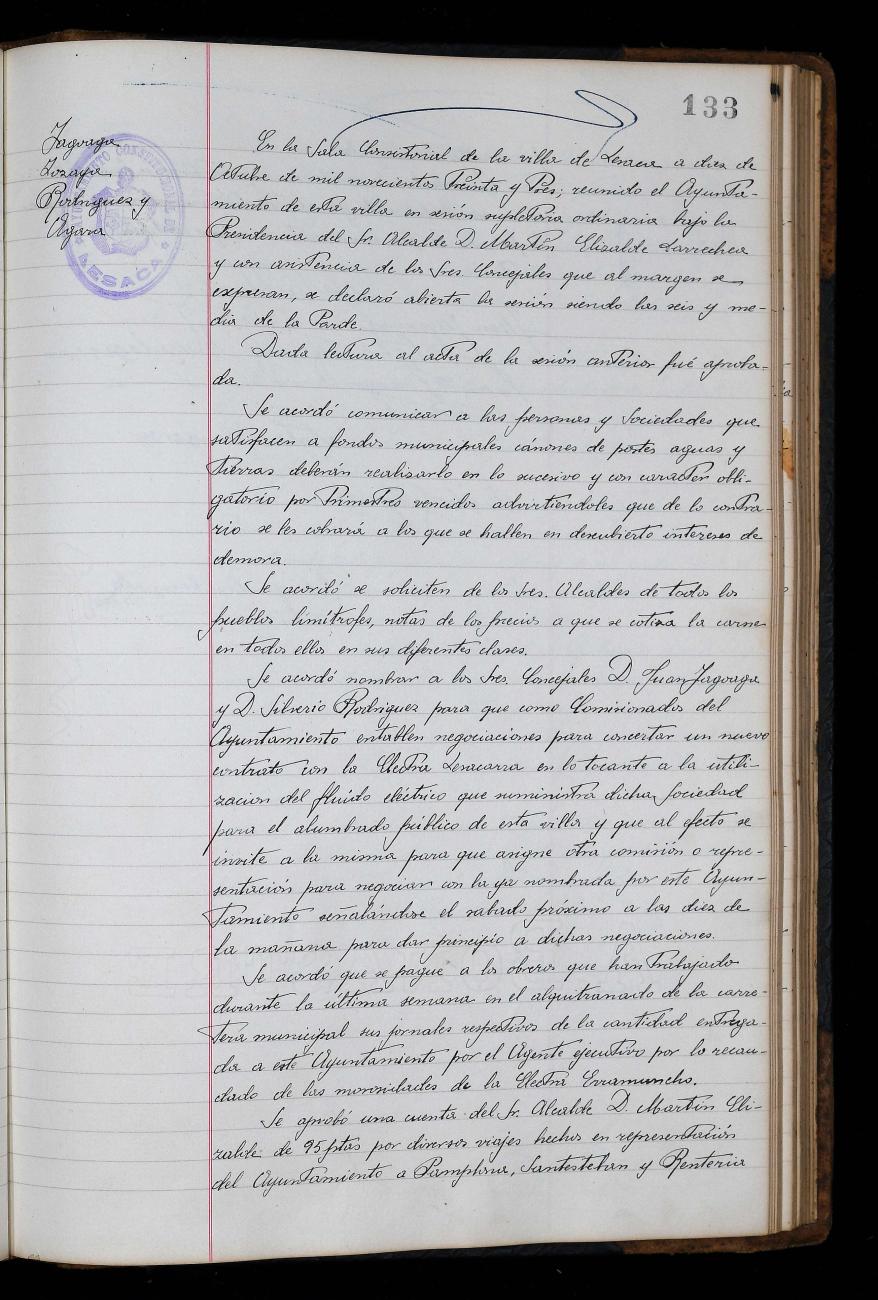 133
Jagoaga
Zozaya
Rodriguez y
Agara
AYUNTAMIENTO CONSTITUCIONAL DE
LESACA
En la Sala Consistorial de la villa de Lesaca a diez de
Octubre de mil novecientos treinta y tres; reunido el Ayunta-
miento de esta villa en sesión supletoria ordinaria bajo la
Presidencia del Sr. Alcalde D. Martín Elizalde Larrechea
y con asistencia de los Sres. Concejales que al margen se
expresan, se declaró abierta la sesión siendo las seis y me-
dia de la tarde.
Dada lectura al acta de la sesión anterior fué aproba-
da.
Se acordó comunicar a las personas y Sociedades que
satisfacen a fondos municipales cánones de postes aguas y
tierras deberán realizarlo en lo sucesivo y con caracter obli-
gatorio por trimestres vencidos advirtiendoles que de lo contra-
rio se les cobrará a los que se hallen en descubierto intereses de
demora.
Se acordó se soliciten de los Sres. Alcaldes de todos los
pueblos limítrofes, notas de los precios a que se cotiza la carne
en todos ellos en sus diferentes clases.
Se acordó nombrar a los Sres. Concejales D. Juan Jagoaga
y D. Silverio Rodriguez para que como Comisionados del
Ayuntamiento entablen negociaciones para concertar un nuevo
contrato con la Electra Lesacarra en lo tocante a la utili-
zacion del fluido eléctrico que suministra dicha Sociedad
para el alumbrado público de esta villa y que al efecto se
invite a la misma para que asigne otra comisión o repre-
sentación para negociar con la ya nombrada por este Ayun-
tamiento señalándose el sabado próximo a las diez de
la mañana para dar principio a dichas negociaciones.
Se acordó que se pague a los obreros que han trabajado
durante la última semana en el alquitranado de la carre-
tera municipal sus jornales respectivos de la cantidad entrega-
da a este Ayuntamiento por el Agente ejecutivo por lo recau-
dado de las morosidades de la Electra Erramuncho.
Se aprobó una cuenta del Sr. Alcalde D. Martín Eli-
zalde de 95 ptas por diversos viajes hechos en representación
del Ayuntamiento a Pamplona, Santesteban y Renteria